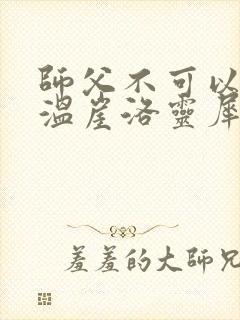 師父不可以
溫崖洛靈犀
羞羞的大師兄